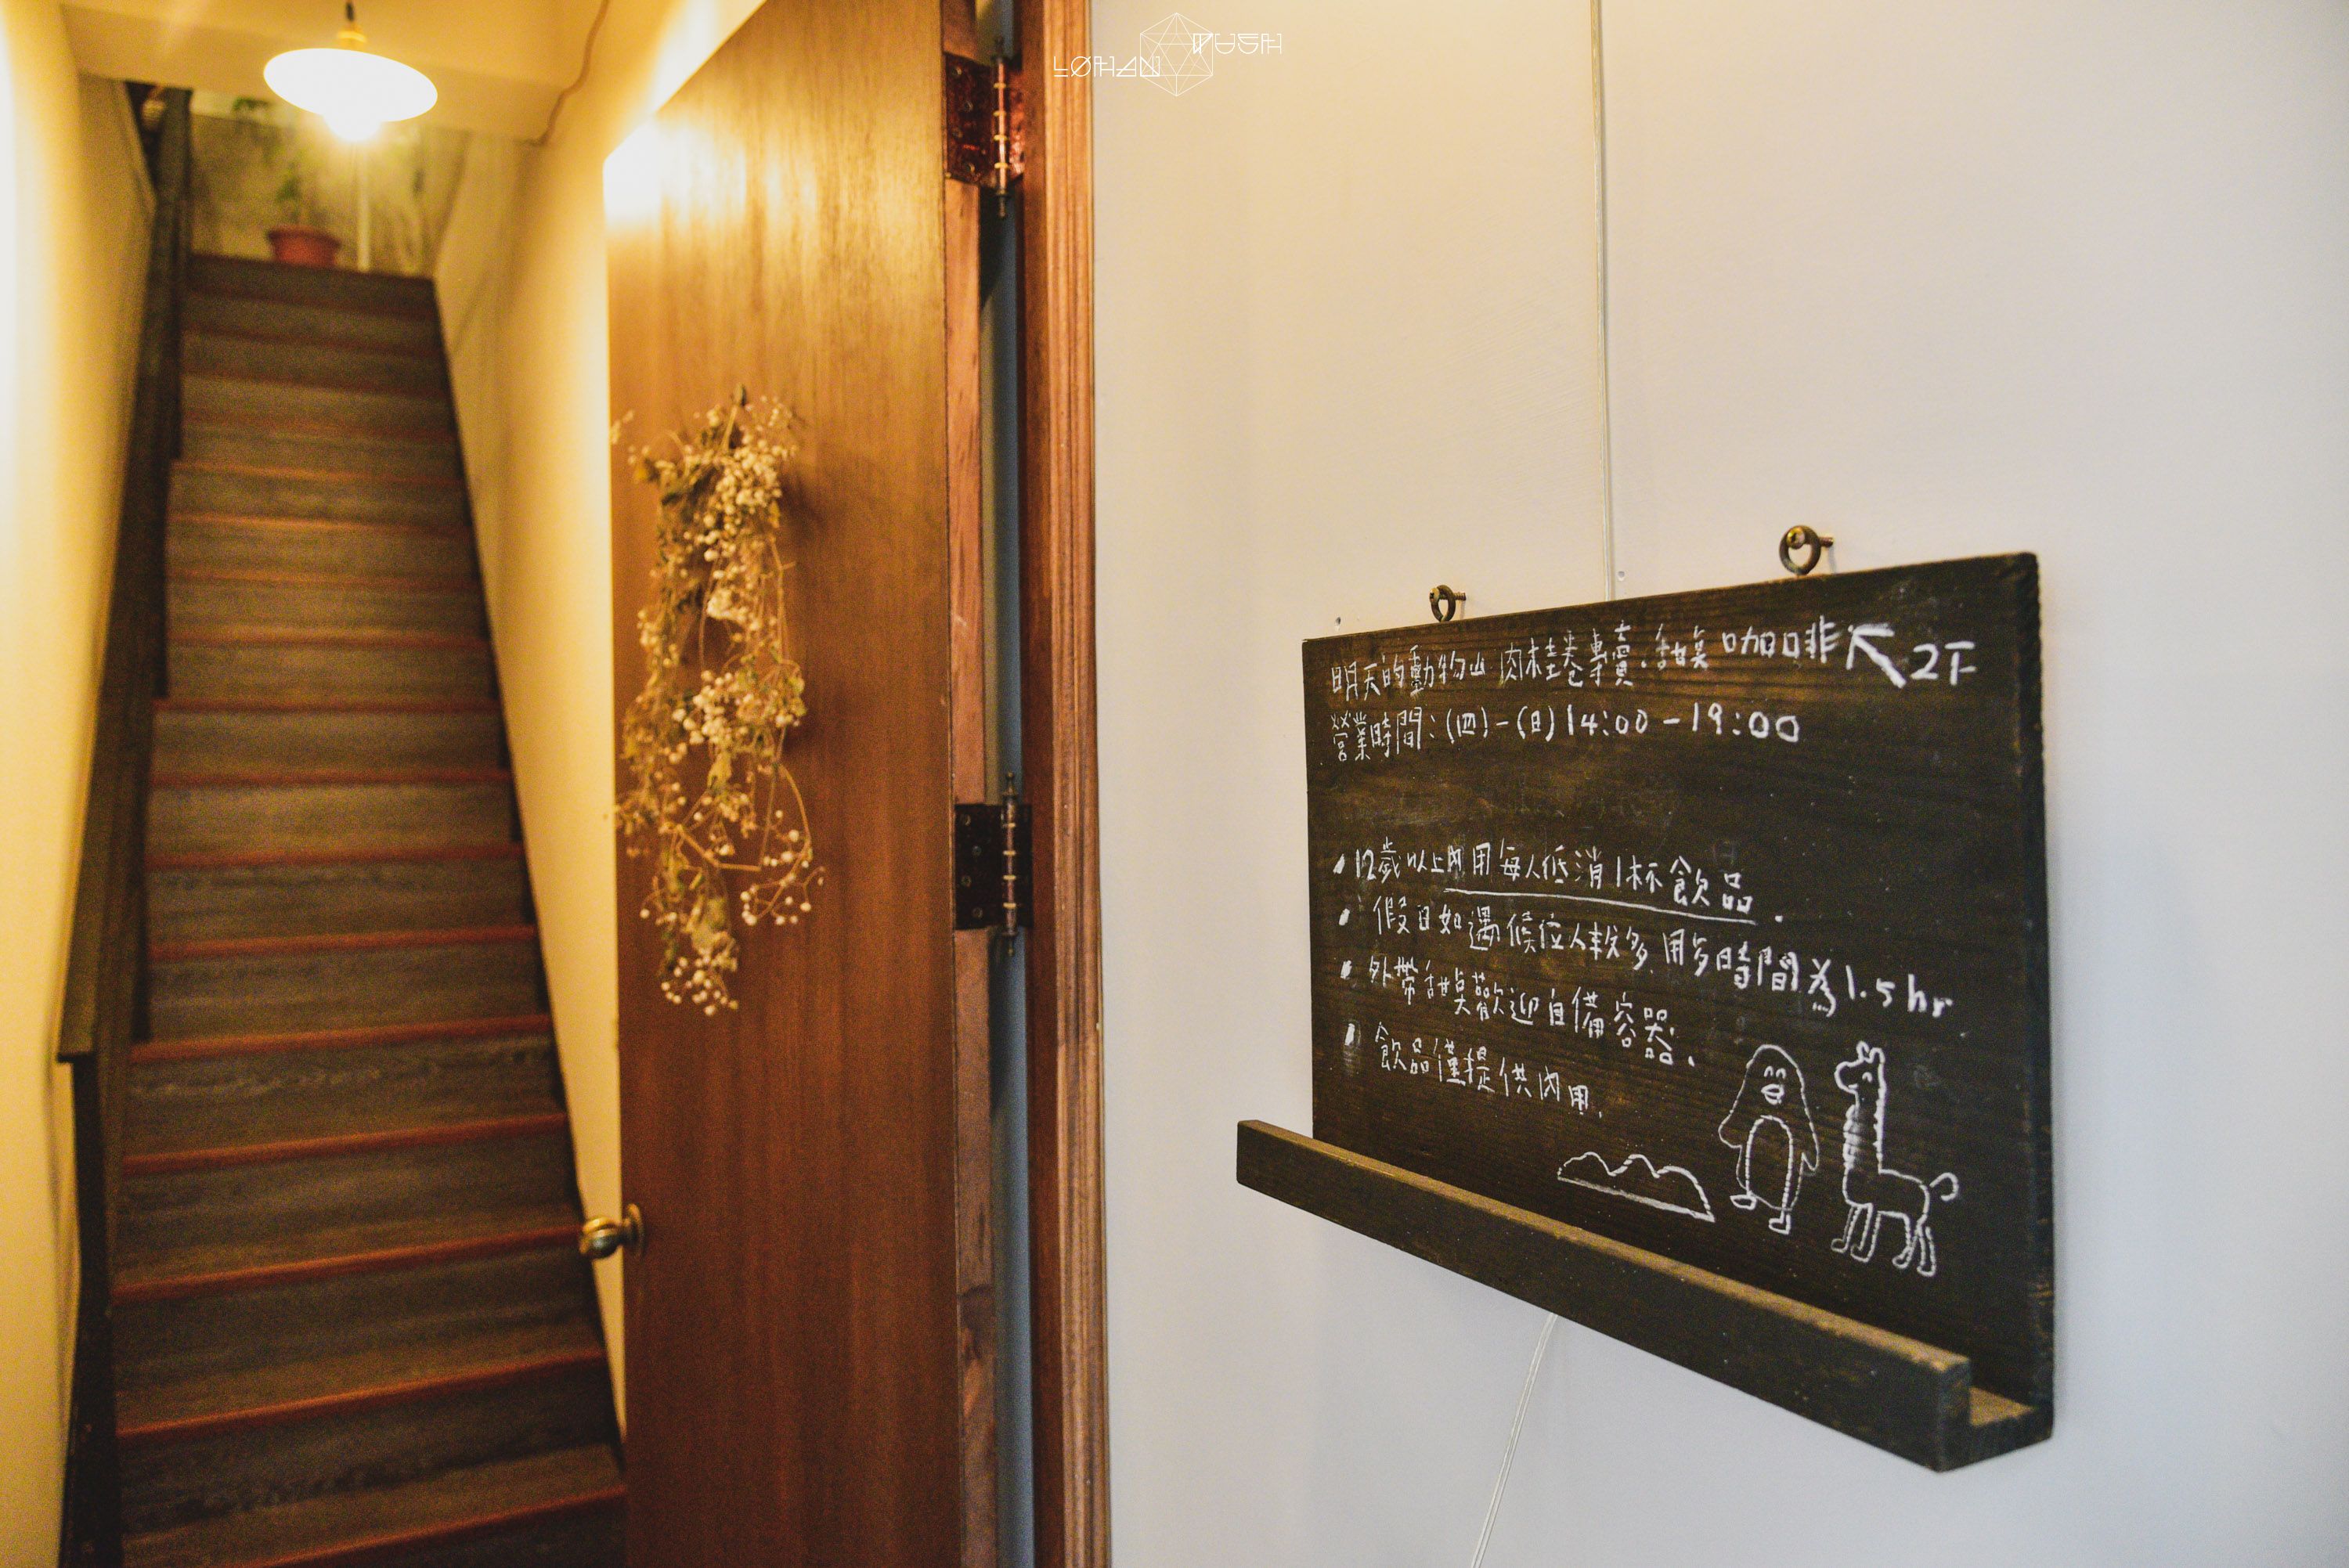 LOHAN MUSH
明天的動物山 肉桂卷專賣.甜點 咖啡 ↖ 2F
營業時間:(四)-(日)14:00-19:00
• 12歲以上內用每人低消1杯飲品.
• 假日如遇候位人較多,用餐時間為1.5hr
• 外帶甜點歡迎自備容器.
• 飲品僅提供內用.